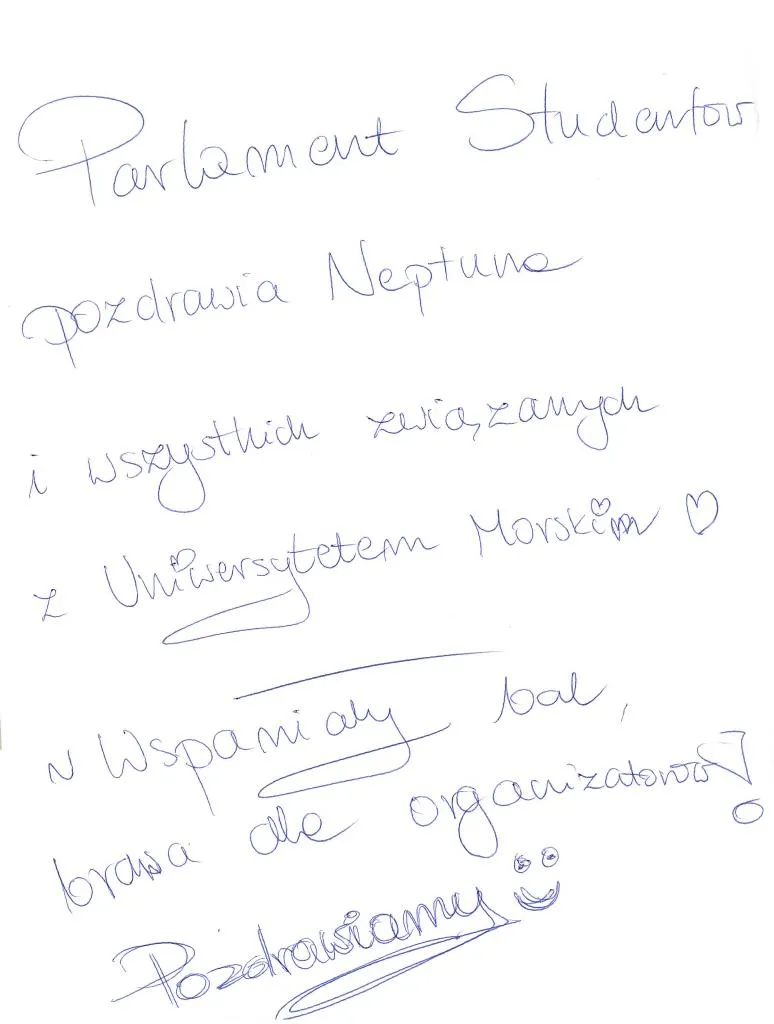 Parlament Studentów
pozdrawia Neptuna
i wszystkich związanych
z Uniwersytetem Morskim ♡
Wspaniały bal,
brawa dla organizatorów!
Pozdrawiamy